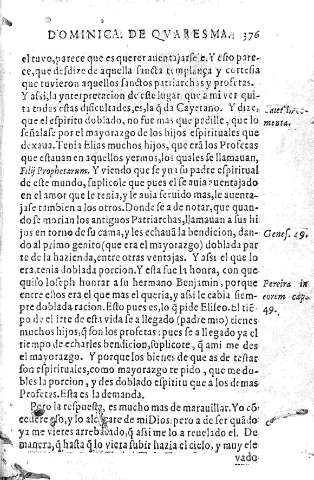 DOMINICA. DE QVARESMA. 376
el tuvo, parece que es querer aventajarsele. Y esto pare-
ce, que desdize de aquella sancta templança y cortesia
que tuvieron aquellos sanctos patriarchas y profetas.
Y assi, la ynterpretacion de este lugar, que a mi ver qui-
ta todas estas dificultades, es, la q̃ da Cayetano. Y dize,
que el espiritu doblado, no fue mas que pedille, que lo
señalase por el mayorazgo de los hijos espirituales que
dexaua. Tenia Elias muchos hijos, que erã los Profetas
que estauan en aquellos yermos, los quales se llamauan,
Filij Prophetarum. Y viendo que se yua su padre espiritual
de este mundo, suplicole que pues el se auia aventajado
en el amor que le tenia, y le auia seruido mas, le auenta-
jase tambien a los otros. Donde se a de notar, que quan-
do se morian los antiguos Patriarchas, llamauan a sus hi
jos en torno de su cama, y les echauã la bendicion, dan-
do al primo genito (que era el mayorazgo) doblada par
te de la hazienda, entre otras ventajas. Y assi el que lo
era, tenia doblada porcion. Y esta fue la honra, con que
quiso Ioseph honrar a su hermano Benjamin, porque
entre ellos era el que mas el queria, y assi le cabia siem-
pre doblada racion. Esto pues es, lo q̃ pide Eliseo. El tiẽ-
po de el irte de esta vida se a llegado (padre mio) tienes
muchos hijos, q̃ son los profetas: pues se a llegado ya el
tiempo de echarles bendicion, suplicote, q̃ ami me des
el mayorazgo. Y porque los bienes de que as de testar
son espirituales, como mayorazgo te pido, que me do-
bles la porcion, y des doblado espiritu que a los demas
Profetas. Esta es la demanda.
Pero la respuesta, es mucho mas de marauillar. Yo cõ-
cedere eso, y lo alcãçare de mi Dios: pero a de ser quãdo
ya me vieres arrebatado, q̃ assi me lo a reuelado el. De
manera, q̃ hasta q̃ lo viera subir hazia el cielo, y muy ele
vado
Genes. 49.
Pereira in
eorem cap.
49.